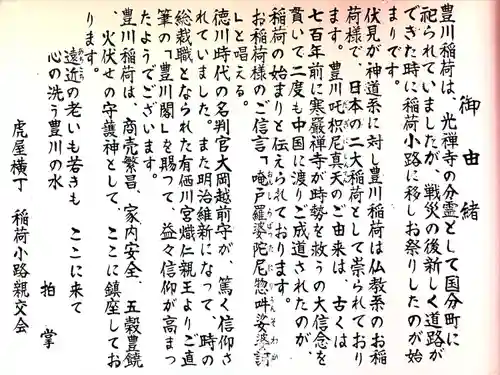 御由緒
豊川稲荷は、光禅寺の分霊として国分町に
祀られていましたが、戦災の後新しく道路が
できた時に稲荷小路に移しお祭りしたのが始
まりです。
伏見が神道系に対し豊川稲荷は仏教系のお稲
荷様で、日本の二大稲荷として崇られており
ます。豊川吒枳尼真天のご由来は、古くは
七百年前に寒巌禅寺が時勢を救うの大信念を
貫いて二度も中国に渡りご成道されたのが、
稲荷の始まりと伝えられております。
お稲荷様のご信言「唵尸羅婆陀尼惣吽娑婆訶
」と唱える。
徳川時代の名判官大岡越前守が、篤く信仰さ
れていました。また明治維新になって、時の
総裁職となられた有栖川宮熾仁親王よりご直
筆の「豊川閣」を賜って、益々信仰が高まっ
たようでございます。
豊川稲荷は、商売繁昌、家内安全、五穀豊饒
、火伏せの守護神として、ここに鎮座してお
ります。
遠近の老いも若きも ここに来て
心の洗う豊川の水
拍掌
虎屋横丁 稲荷小路親交会